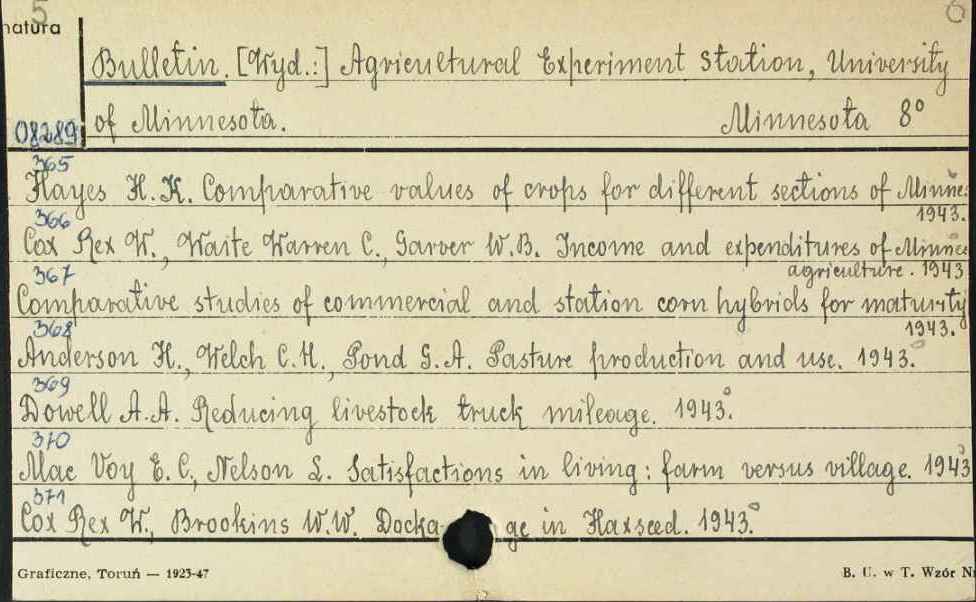 5 6
natura
Bulletin. [Wyd.:] Agricultural Experiment Station, University
08289 of Minnesota. Minnesota 8°
365
Hayes H.K. Comparative values of crops for different sections of Minnes
1943.
366
Cox Rex W., Waite Warren C., Garver W.B. Income and expenditures of Minnes
agriculture. 1943
367
Comparative studies of commercial and station corn hybrids for maturity
1943.
368
Anderson H., Welch C.H., Pond G.A. Pasture production and use. 1943.
369
Dowell A.A. Reducing livestock truck mileage. 1943.
370
Mac Voy E.C., Nelson L. Satisfactions in living: farm versus village. 1943
371
Cox Rex W., Brookins W.W. Docka ge in Flaxseed. 1943.
Graficzne, Toruń — 1923-47 B. U. w T. Wzór Nr